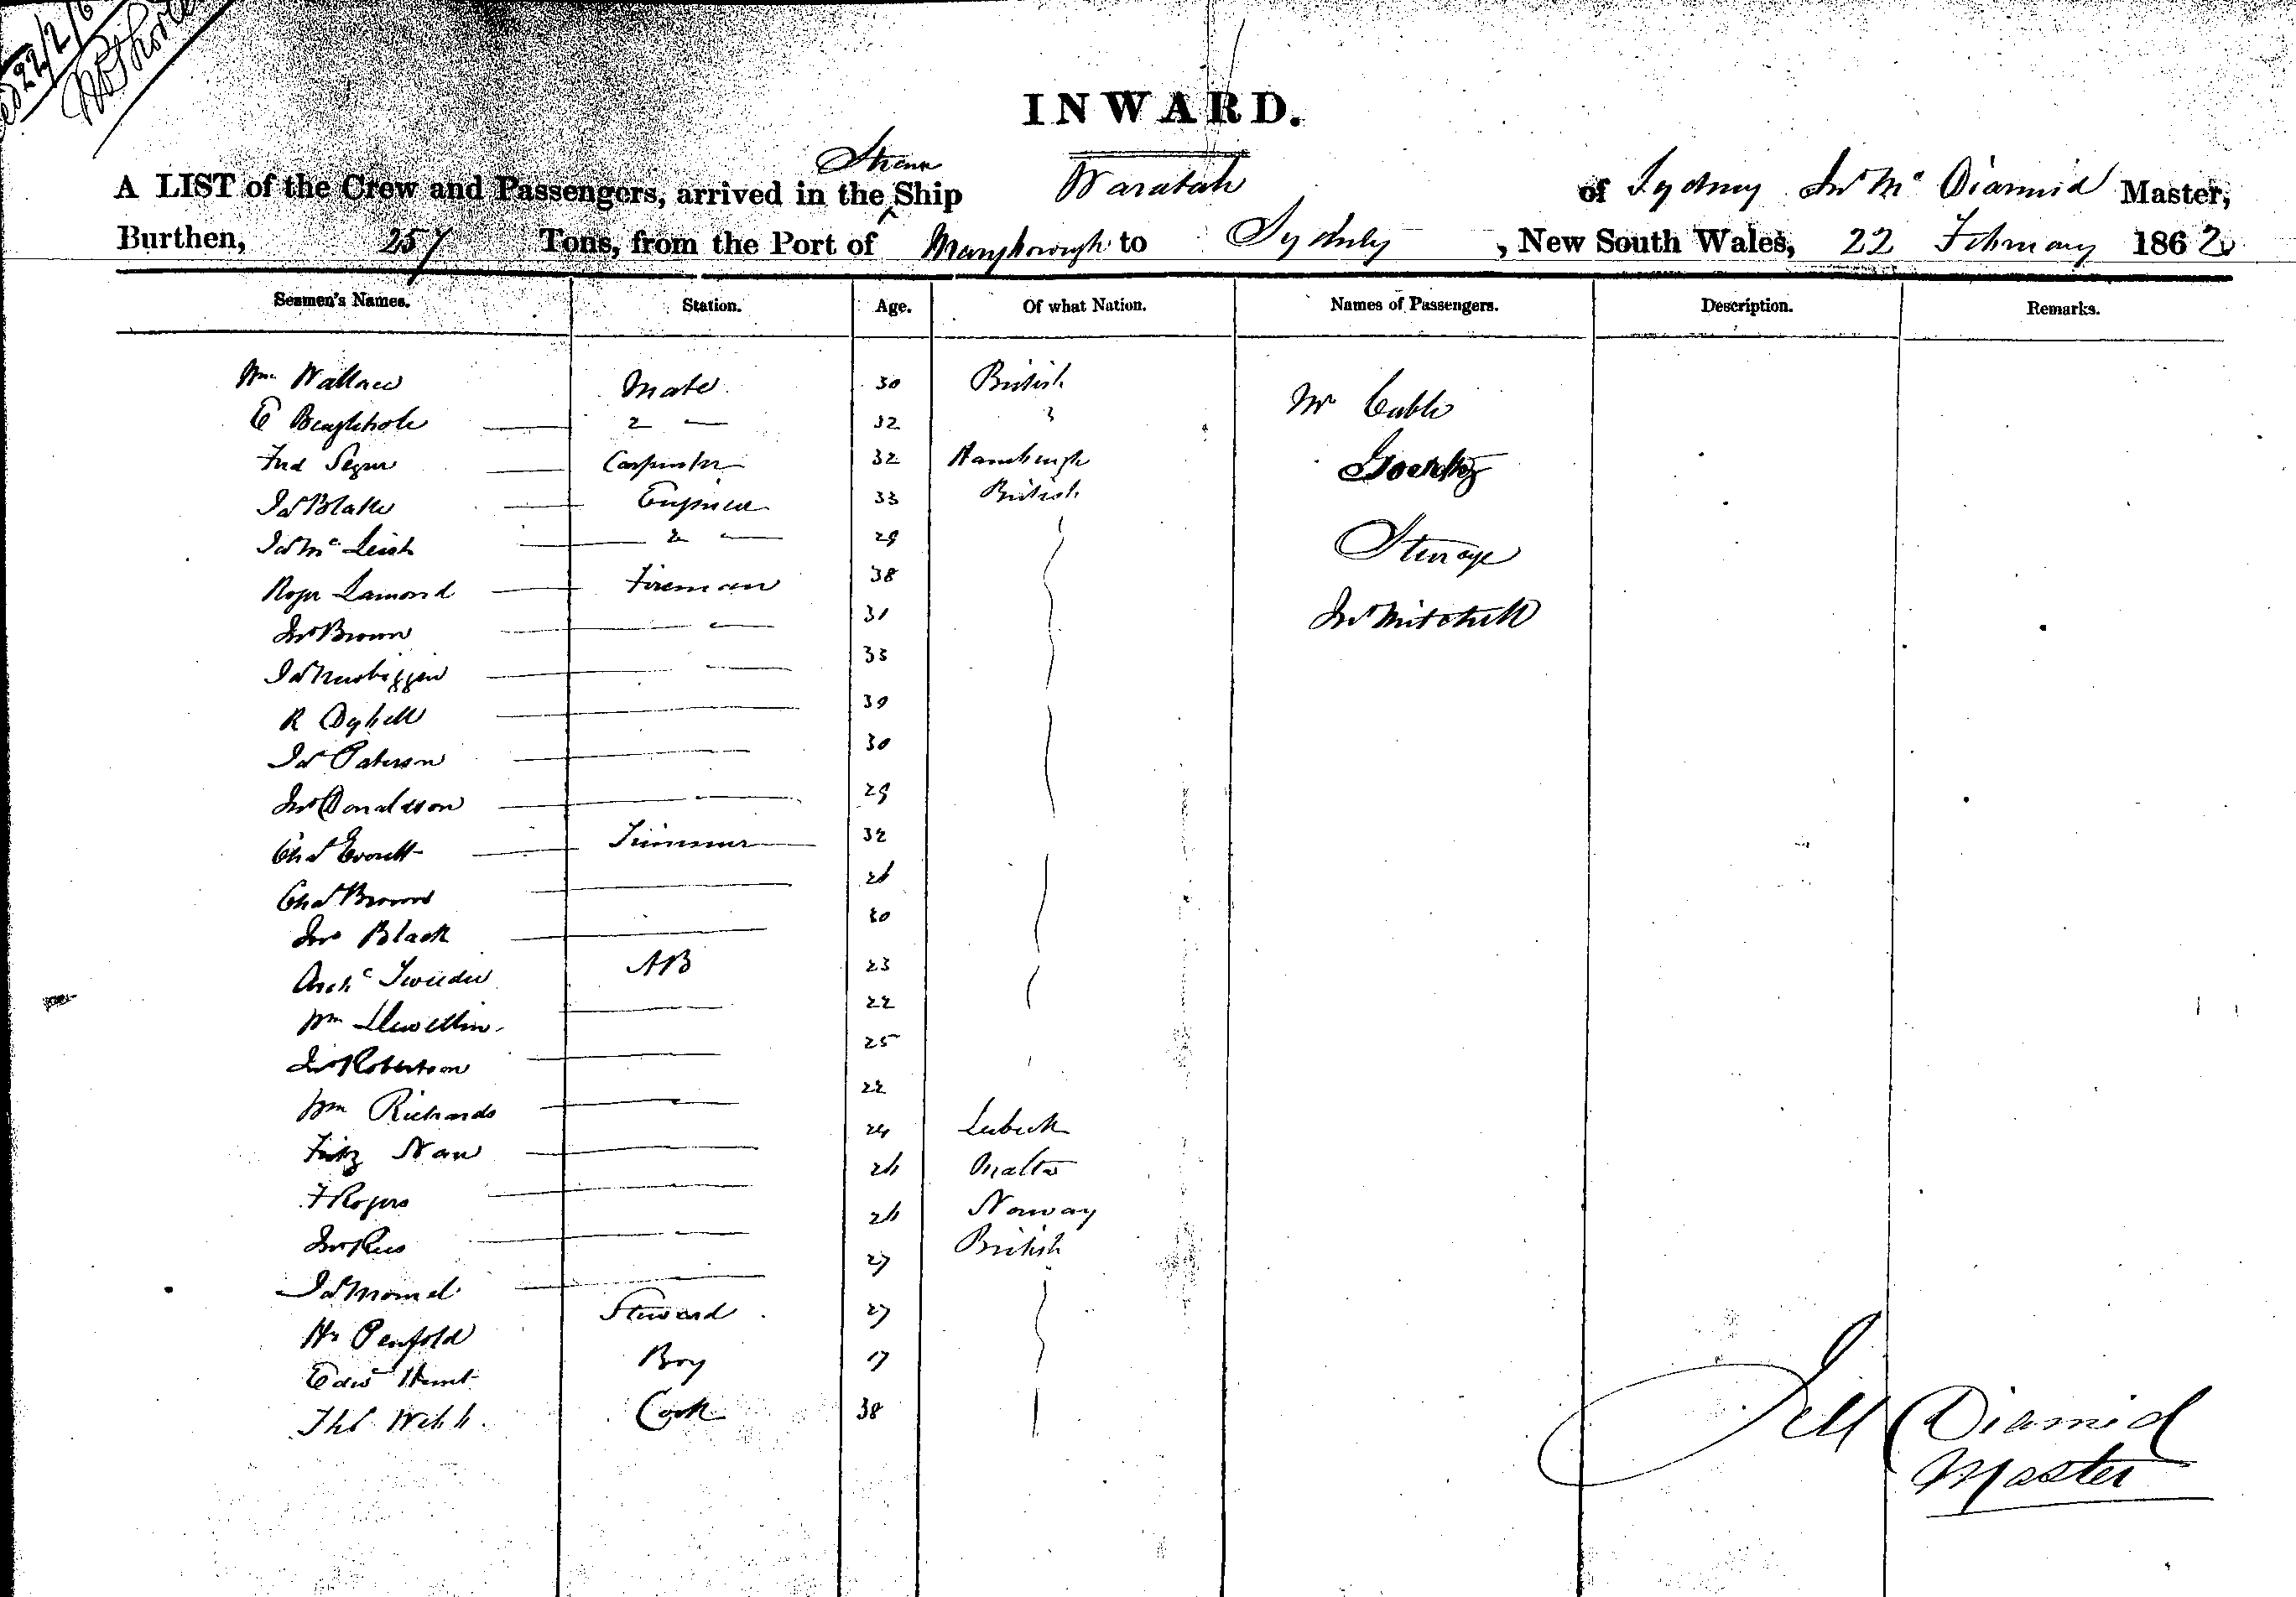 22/2/6
INWARD.
A LIST of the Crew and Passengers, arrived in the Steam Ship Waratah of Sydney Jno Mc Diarmid Master,
Burthen, 257 Tons, from the Port of Maryborough to Sydney, New South Wales, 22 February 1862
Seamen's Names. Station. Age. Of what Nation. Names of Passengers. Description. Remarks.
Wm Wallace Mate 30 British Mr Cubb
E Beaglehole 2 — 32 "
Fred Carpenter 32 Hamburgh Goertz
Jas Blake Engineer 33 British
Jas Mc Leish 2 — 29 Steerage
Roger Lamond Fireman 38
Jno Brown — 31 Jno Mitchell
Jas Newbiggen — 33
R 39
Jas Paterson — 30
Jno Donaldson — 29
Chas Everett Trimmer 32
Chas Brown — 26
Jno Black — 30
Archd Tweedie AB 23
Wm Llewellin — 22
Jno Robertson — 25
Wm Richards — 22
Fritz Nau — 24 Lubeck
F Rogers — 26 Malta
Jno Rees — 26 Norway
Jas — 27 British
Hy Penfold Steward 27
Edwd Hunt Boy 17
Ths Webb Cook 38
Diarmid
Master